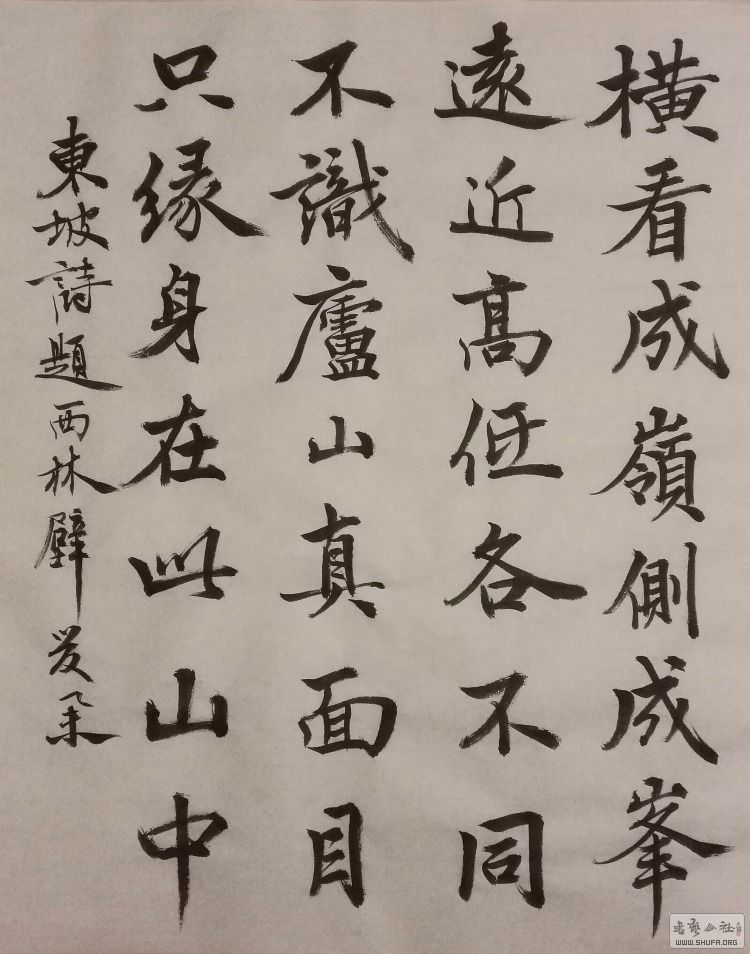 橫看成嶺側成峯
遠近高低各不同
不識廬山真面目
只緣身在此山中
東坡詩題西林壁
書藝公社
WWW.SHUFA.ORG